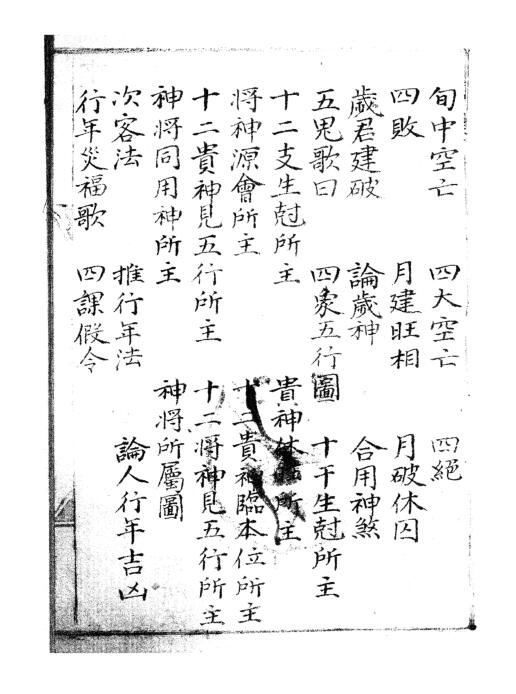 旬中空亡 四大空亡 四絕
四敗 月建旺相 月破休囚
歲君建破 論歲神 合用神煞
五鬼歌曰 四象五行圖 十干生尅所主
十二支生尅所主 貴神休 所主
將神源會所主 十二貴神臨本位所主
十二貴神見五行所主 十二將神見五行所主
神將同用神所主 神將所屬圖
次客法 推行年法 論人行年吉凶
行年災福歌 四課假令